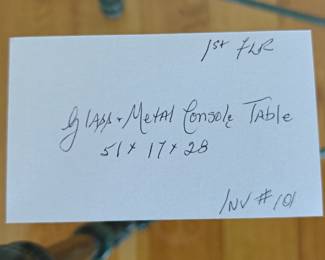 1st FLR
Glass + Metal Console Table
51 x 17 x 28
INV # 101